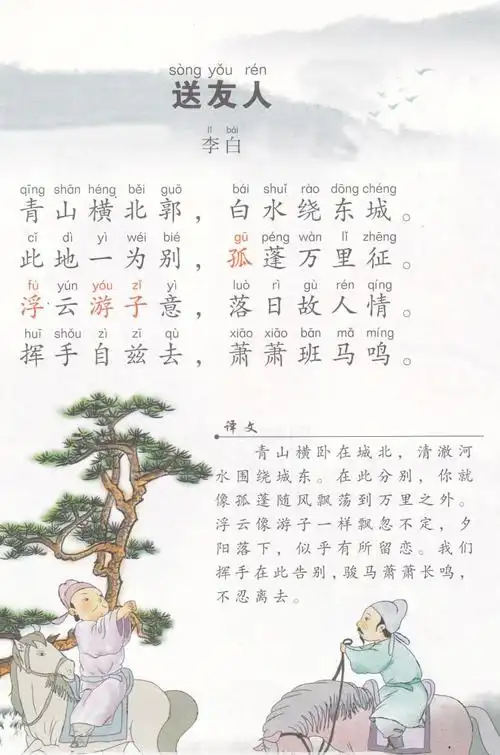 sòng yǒu rén
送友人
lǐ bái
李白
qīng shān héng běi guō bái shuǐ rào dōng chéng
青山横北郭，白水绕东城。
cǐ dì yì wéi bié gū péng wàn lǐ zhēng
此地一为别，孤蓬万里征。
fú yún yóu zǐ yì luò rì gù rén qíng
浮云游子意，落日故人情。
huī shǒu zì zī qù xiāo xiāo bān mǎ míng
挥手自兹去，萧萧班马鸣。
译文
青山横卧在城北，清澈河
水围绕城东。在此分别，你就
像孤蓬随风飘荡到万里之外。
浮云像游子一样飘忽不定，夕
阳落下，似乎有所留恋。我们
挥手在此告别，骏马萧萧长鸣，
不忍离去。